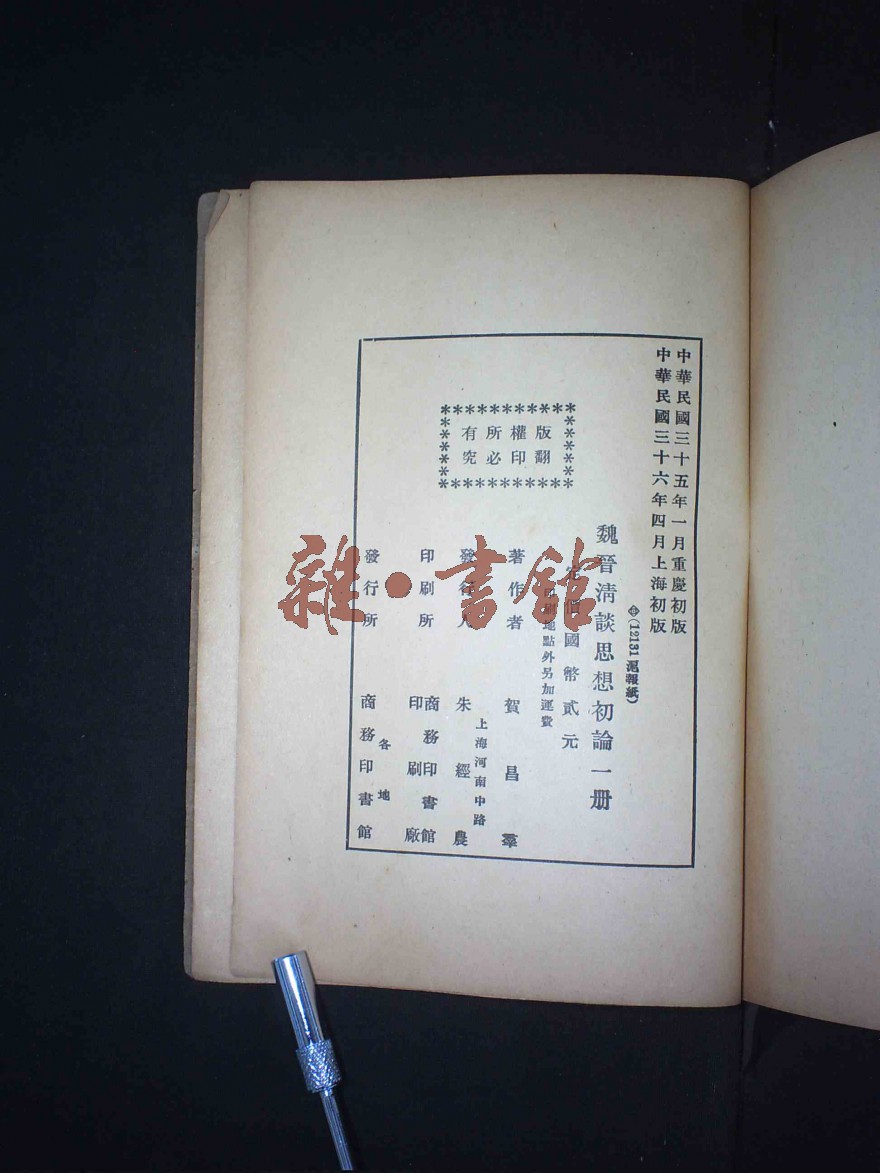 中華民國三十五年一月重慶初版
中華民國三十六年四月上海初版
(12131滬報紙)
魏晉清談思想初論一册
定價國幣貳元
印刷地點外另加運費
版權所有
翻印必究
著作者 賀昌羣
發行人 朱經農
上海河南中路
印刷所 商務印書館
印刷廠
發行所 商務印書館
各地
雜·書館